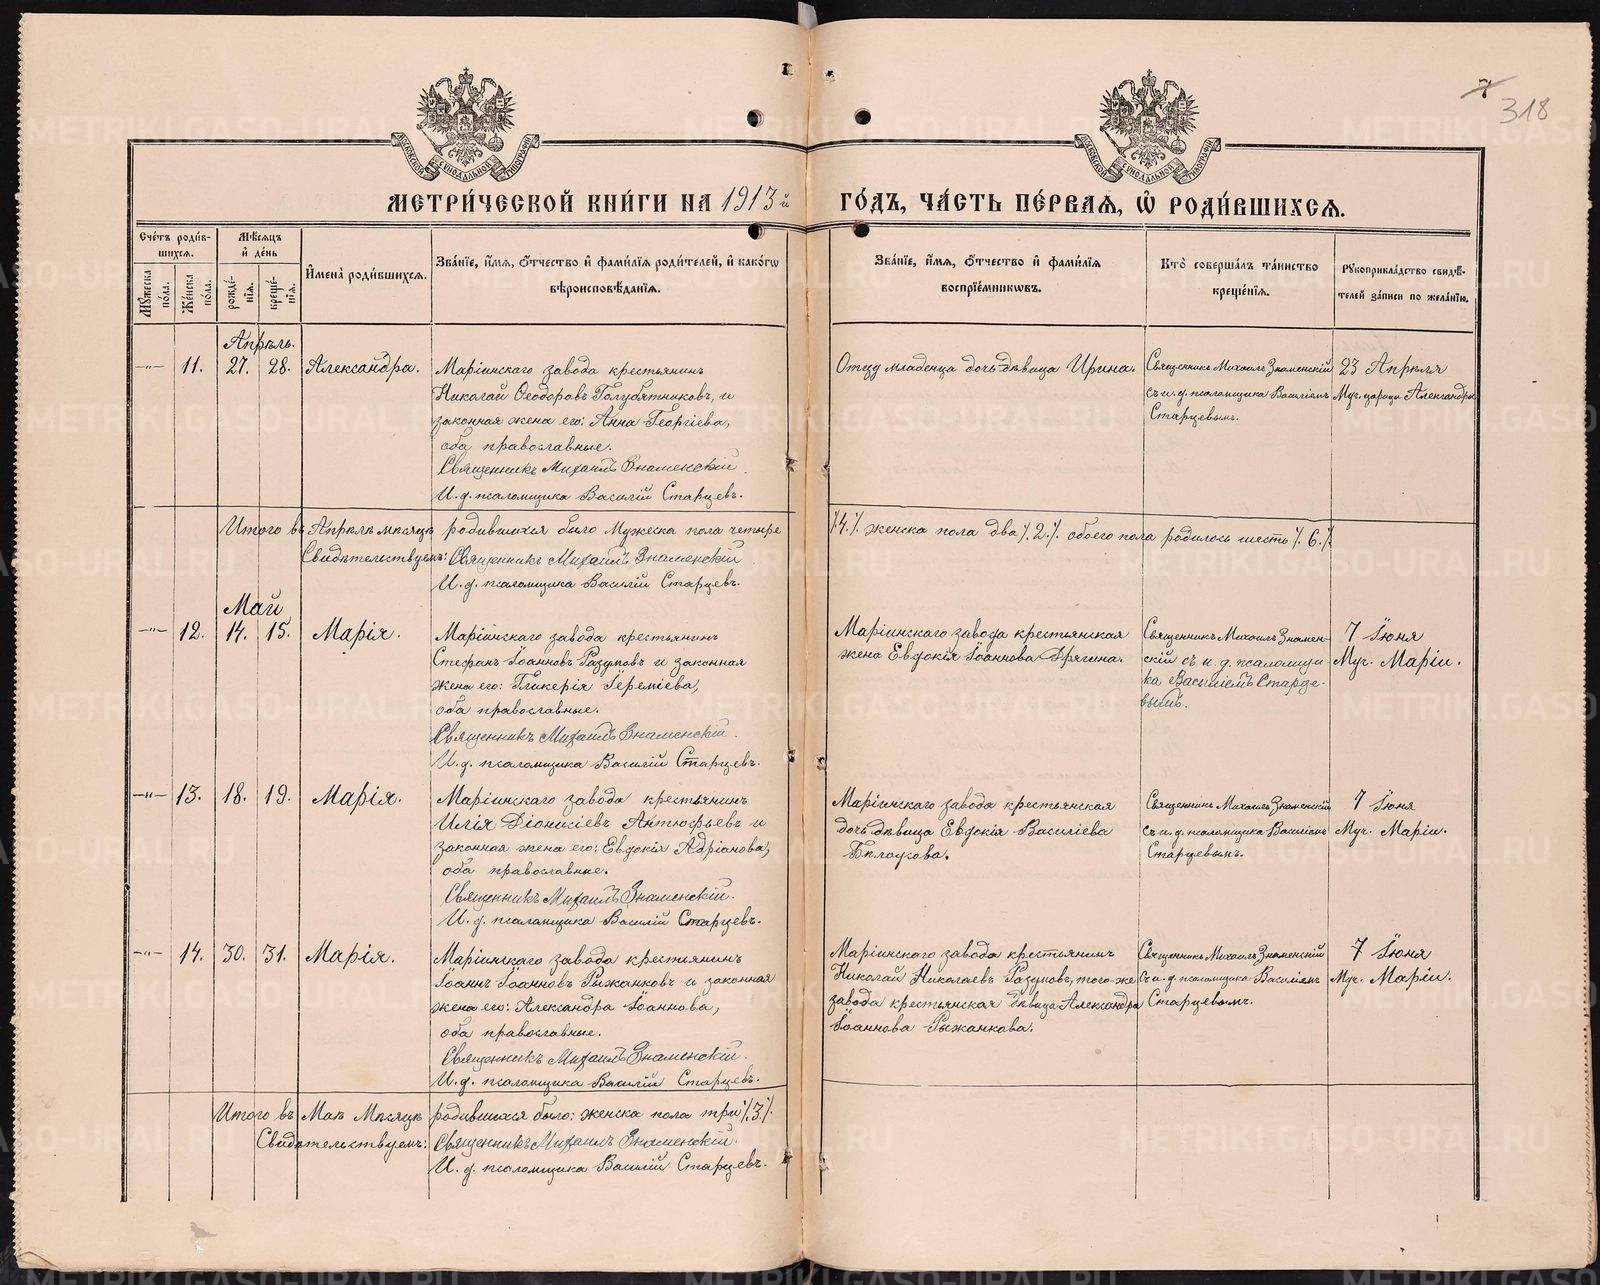 318
МОСКОВСКОЙ СѴНОДАЛЬНОЙ ТИПОГРАФІИ
МОСКОВСКОЙ СѴНОДАЛЬНОЙ ТИПОГРАФІИ
МЕТРИ́ЧЕСКОЙ КНИ́ГИ НА 1913й ГО́ДЪ, ЧА́СТЬ ПЕ́РВАѦ, Ѡ҆ РОДИ́ВШИХСѦ.
Сче́тъ роди́в-
шихсѧ.
Мѣ́сѧцъ
и҆ де́нь
Мꙋ́жеска
пола.
Же́нска
пола.
рожде́-
нїѧ.
креще́-
нїѧ.
И҆мена̀ роди́вшихсѧ.
Зва́нїе, и҆́мѧ, ѻ҆́тчество и҆ фами́лїѧ роди́телей, и҆ како́гѡ
вѣроисповѣ́данїѧ.
Зва́нїе, и҆́мѧ, ѻ҆́тчество и҆ фами́лїѧ
воспрїе́мниковъ.
Кто̀ соверша́лъ та́инство
креще́нїѧ.
Рꙋкоприкла́дство свидѣ́-
телей за́писи по жела́нїю.
Апрѣль.
—"— 11. 27. 28. Александра.
Маріинскаго завода крестьянинъ
Николай Ѳеодоровъ Голубятниковъ, и
законная жена его: Анна Георгіева,
оба православные.
Священникъ Михаилъ Знаменскій.
И. д. псаломщика Василій Старцевъ.
Отцу младенца дочь дѣвица Ирина.
Священникъ Михаилъ Знаменскій
съ и. д. псаломщика Василіемъ
Старцевымъ.
23 Апрѣля
Муч. царицы Александры
Итого въ Апрѣлѣ мѣсяцѣ родившихся было Мужеска пола четыре ٪4.٪ женска пола два ٪2.٪ обоего пола родилось шесть ٪6.٪
Свидѣтельствуемъ: Священникъ Михаилъ Знаменскій
И. д. псаломщика Василій Старцевъ.
Май
—"— 12. 14. 15. Марія.
Маріинскаго завода крестьянинъ
Стефанъ Іоанновъ Разумовъ и законная
жена его: Гликерія Іереміева,
оба православные.
Священникъ Михаилъ Знаменскій.
И. д. псаломщика Василій Старцевъ.
Маріинскаго завода крестьянская
жена Евдокія Іоаннова Дрягина.
Священникъ Михаилъ Знамен-
скій съ и. д. псаломщи-
ка Василіемъ Старце-
вымъ.
7 Іюня
Муч. Маріи.
—"— 13. 18. 19. Марія.
Маріинскаго завода крестьянинъ
Илія Діонисіевъ Антюфьевъ и
законная жена его: Евдокія Адріанова,
оба православные.
Священникъ Михаилъ Знаменскій.
И. д. псаломщика Василій Старцевъ.
Маріинскаго завода крестьянская
дочь дѣвица Евдокія Василіева
Бѣлоусова.
Священникъ Михаилъ Знаменскій
съ и. д. псаломщика Василіемъ
Старцевымъ.
7 Іюня
Муч. Маріи.
—"— 14. 30. 31. Марія.
Маріинскаго завода крестьянинъ
Іоаннъ Іоанновъ Рыжанковъ и законная
жена его: Александра Іоаннова,
оба православные.
Священникъ Михаилъ Знаменскій.
И. д. псаломщика Василій Старцевъ.
Маріинскаго завода крестьянинъ
Николай Николаевъ Разумовъ, того-же
завода крестьянская дѣвица Александра
Іоаннова Рыжанкова.
Священникъ Михаилъ Знаменскій
съ и. д. псаломщика Василіемъ
Старцевымъ.
7 Іюня
Муч. Маріи.
Итого въ Маѣ Мѣсяцѣ родившихся было: женска пола три ٪3.٪
Свидѣтельствуемъ: Священникъ Михаилъ Знаменскій.
И. д. псаломщика Василій Старцевъ.
METRIKI.GASO-URAL.RU